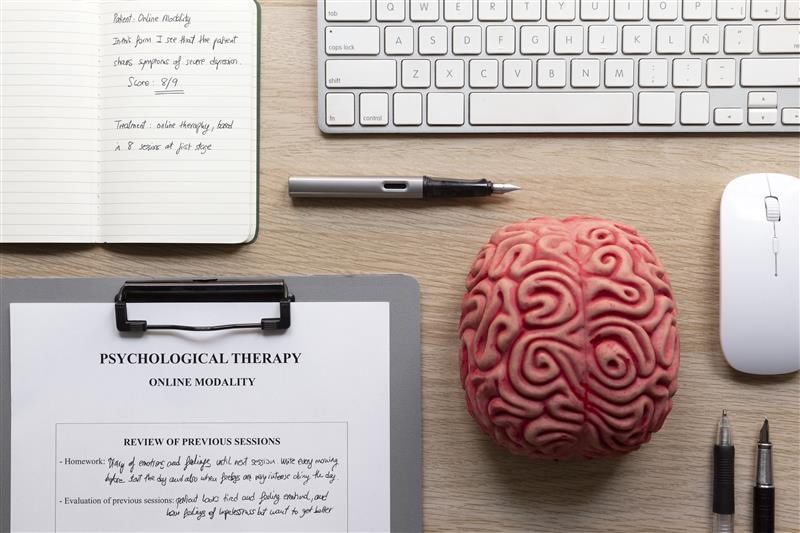 Patient: Online Modality
In this form I see that the patient
shows symptoms of severe depression.
Score: 8/9
Treatment: online theraphy, based
in 8 sesions at fist stage
tab Q W E R T Y U I O P
caps lock A S D F G H J K L Ñ
shift Z X C V B N M
fn control
PSYCHOLOGICAL THERAPY
ONLINE MODALITY
REVIEW OF PREVIOUS SESSIONS
- Homework: Diary of emotions and feelings until next session. Write every morning
before start the day and also when feelings are very intense along the day.
- Evaluation of previous sessions: patient looks tired and feeling emotional, and
has feelings of hopelessness but want to get better